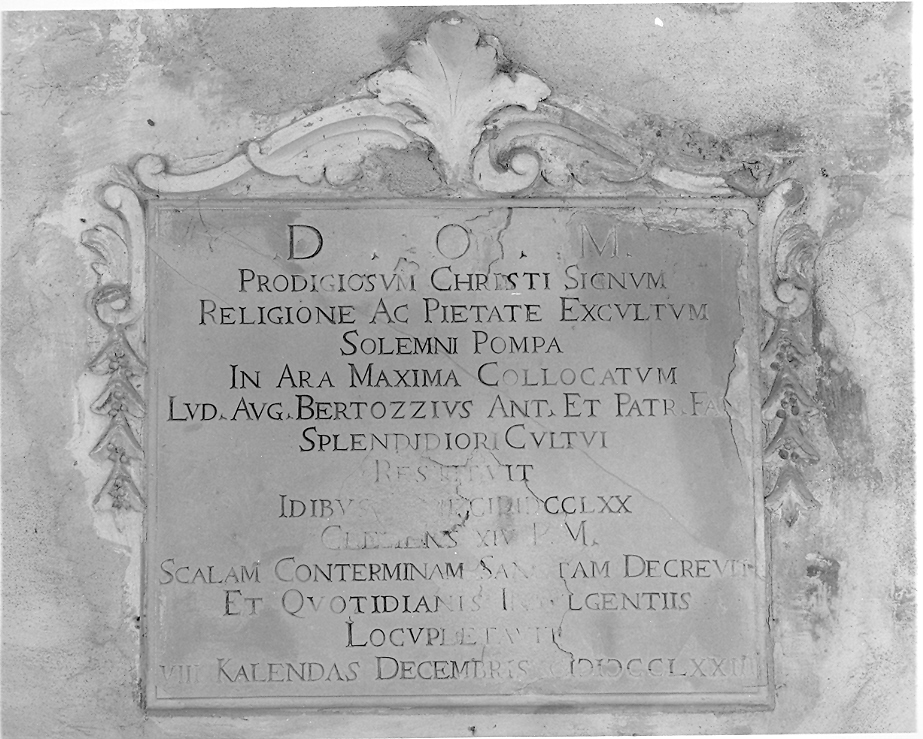 D. O. M.
PRODIGIOSVM CHRISTI SIGNVM
RELIGIONE AC PIETATE EXCVLTVM
SOLEMNI POMPA
IN ARA MAXIMA COLLOCATVM
LVD. AVG. BERTOZZIVS ANT. ET PATR.
SPLENDIDIORI CVLTVI
RESTITVIT
IDIBVS
CLEMENS XIV P. M.
SCALAM CONTERMINAM SANCTAM DECREVIT
ET QVOTIDIANIS INDVLGENTIIS
LOCVPLETAVIT
VIII KALENDAS DECEMBRIS